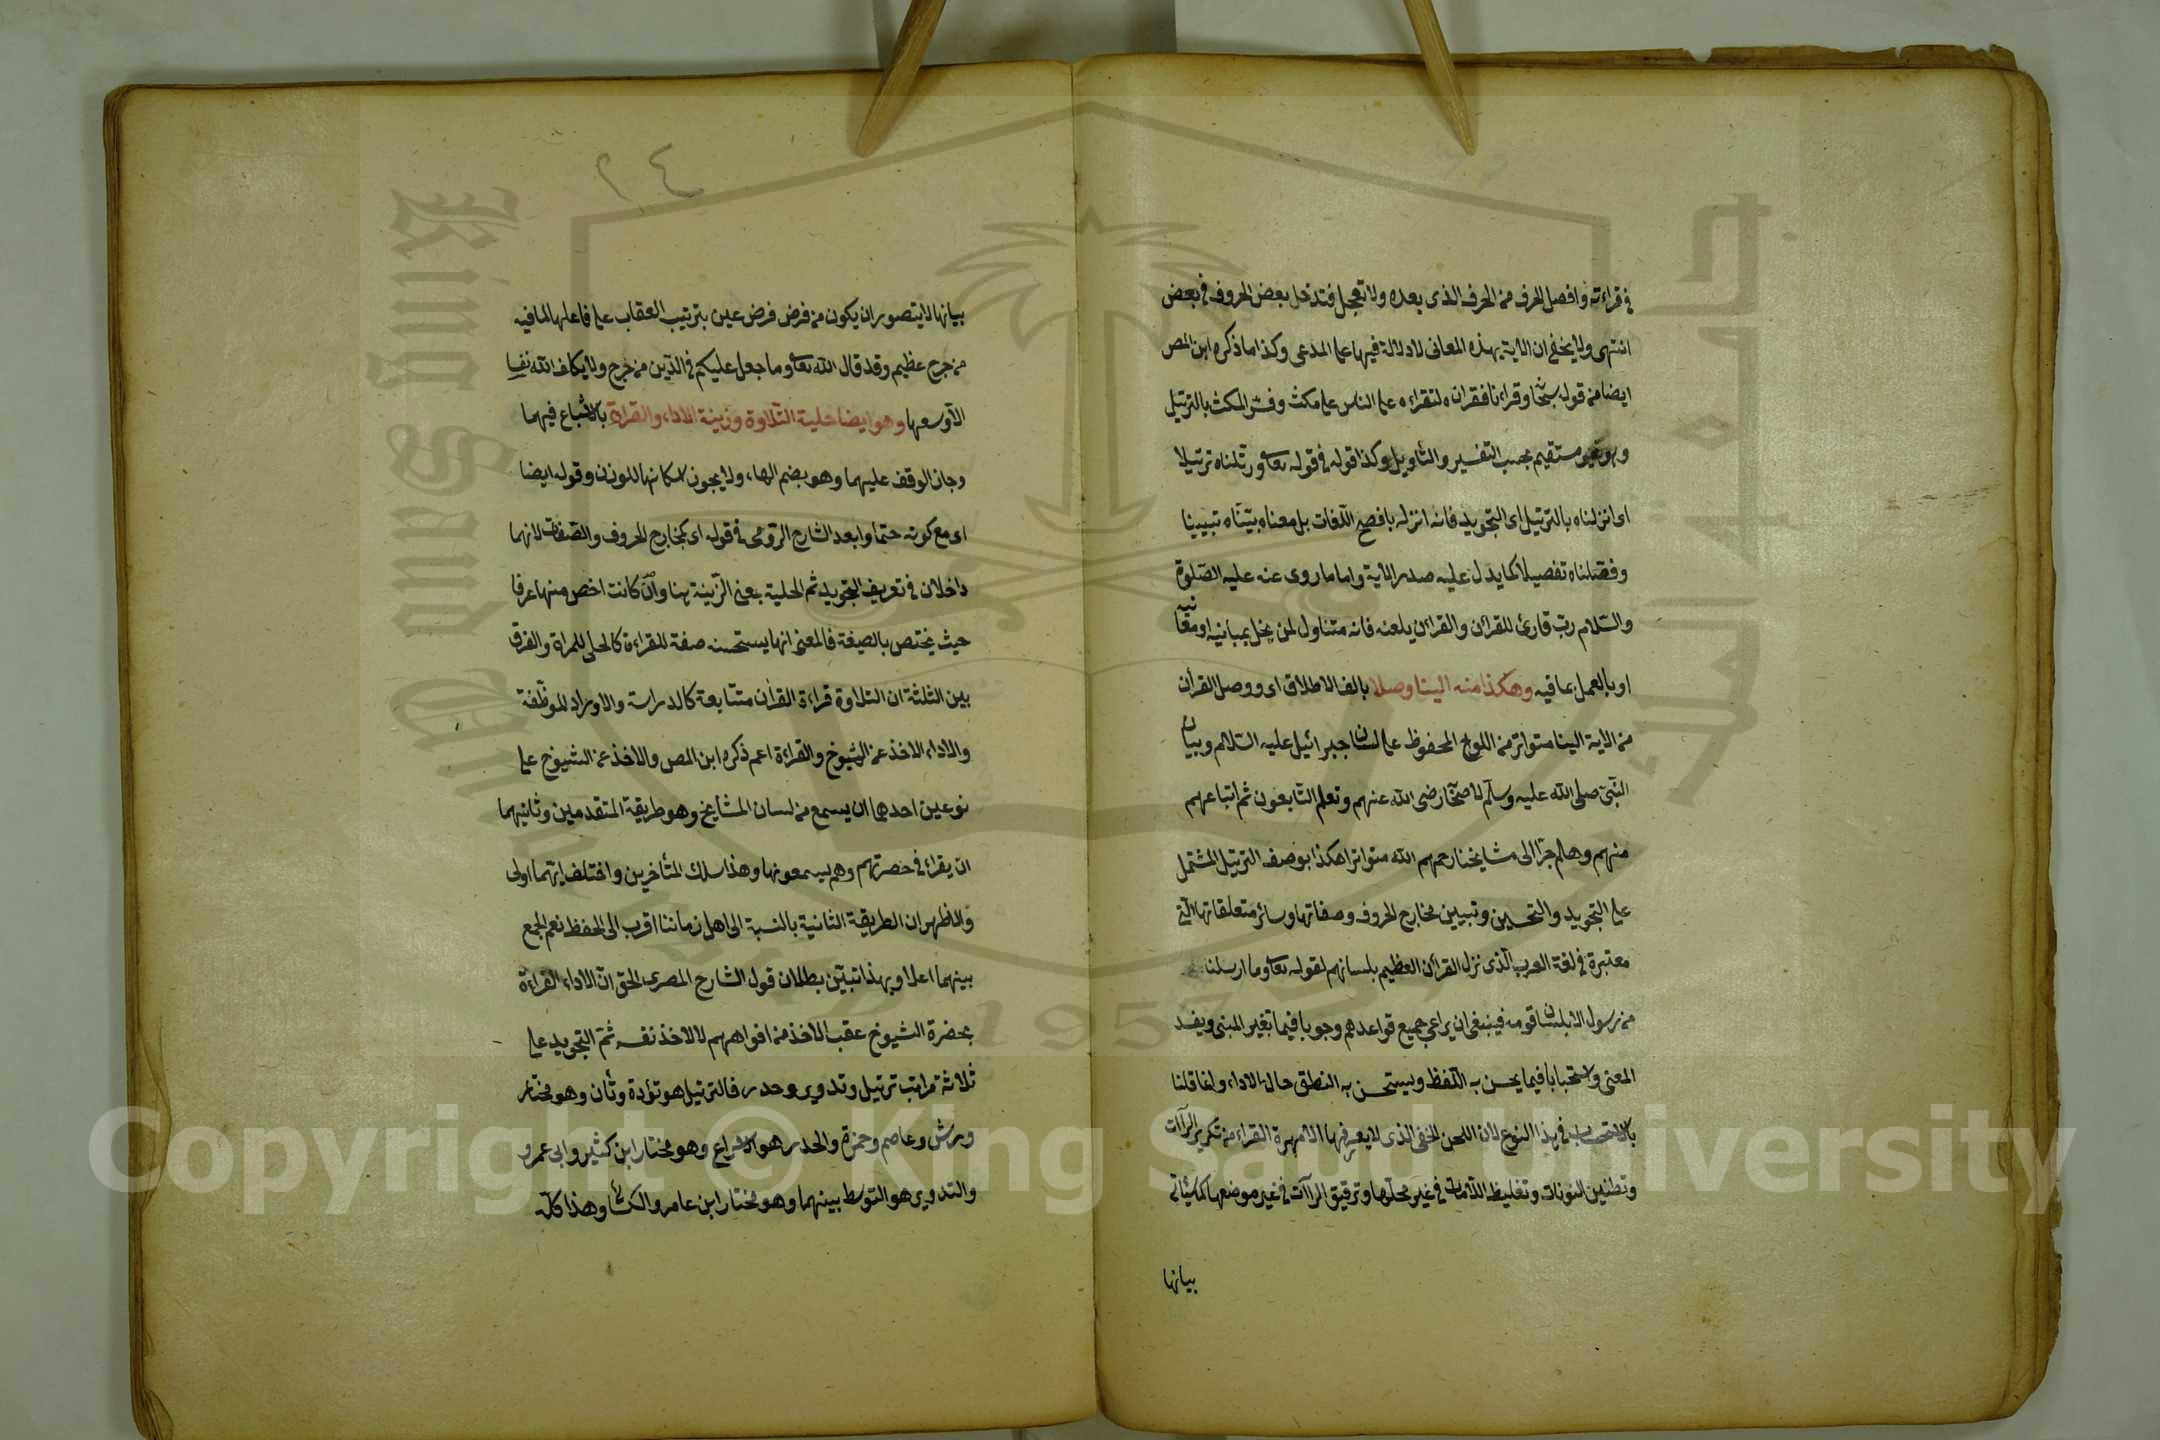 في قراءته وافصل الحرف من الحرف الذى بعده ولا تعجل فتدخل بعض الحروف في بعض
انتهى ولا يخفى ان الآية بهذه المعانى لا دلالة فيها على المدعى وكذا ما ذكره ابن المص
ايضا من قوله سبحا وقرانا فرقناه لتقراءه على الناس على مكث وفسر المكث بالترتيل
وهو غير مستقيم بحسب التفسير والتأويل وكذا قوله في قوله تعا ورتلناه ترتيلا
اى انزلناه بالترتيل اى التجويد فانه انزله بافصح اللغات بل معناه بيّنّاه تبيينا
وفصّلناه تفصيلا كما يدل عليه صدر الآية واما ما روى عنه عليه الصلوة
والسّلام ربّ قارئ للقرآن والقرآن يلعنه فانه متناول لمن يخل بمبانيه او معانيه
او بالعمل بما فيه وهكذا منه الينا وصلا بالف الاطلاق اى ووصل القرآن
من الآية الينا متواتر من اللوح المحفوظ على لسان جبرائيل عليه السّلام وبيان
النّبىّ صلى الله عليه وسلّم لاصحا رضى الله عنهم وتعلم التّابعون ثم اتباعهم
منهم وهلم جرّا الى مشايخنا رحمهم الله متواترا هكذا بوصف الترتيل المشتمل
على التجويد والتحسين وتبيين مخارج الحروف وصفاتها وسائر متعلقاتها الّتى
معتبرة في لغة العرب الّذى نزل القرآن العظيم بلسانهم لقوله تعا وما ارسلنا
من رسول الا بلسان قومه فينبغى ان يراعى جميع قواعدهم وجوبا فيما تغير المبنى ويفسد
المعنى واستحبابا فيما يحسن به اللّفظ ويستحسن به النطق حال الاداء وانما قلنا
بالاستحباب في هذا النوع لان اللحن الخفى الذى لا يعرفها الا مهرة القراء من تكرير الرّاآت
وتطنين النونات وتغليظ اللامات في غير محلّها وترقيق الراآت في غير موضعها كما سيأتى
بيانها
٢٤
بيانها لا يتصور ان يكون من فرض فرض عين بترتيب العقاب على فاعلها لما فيه
من حرج عظيم وقد قال الله تعا وما جعل عليكم في الدّين من حرج ولا يكلف الله نفسا
الّا وسعها وهو ايضا حلية التّلاوة وزينة الاداء والقراة بالاشباع فيهما
وجاز الوقف عليهما وهو بضم الهاء ولا يجوز اسكانها للوزن وقوله ايضا
اى مع كونه حتما وابعد الشارح الرّومى في قوله اى كمخارج الحروف والصّفات لانهما
داخلان في تعريف التجويد ثم الحلية بمعنى الزّينة هنا وان كانت اخص منها عرفا
حيث يختص بالصيغة فالمعنى انها يستحسنه صفة للقراءة كالحلى للمراة والفرق
بين الثلثة ان التلاوة قراءة القرآن متتابعة كالدراسة والاوراد الموظّفة
والاداء الاخذ عن الشيوخ والقراءة اعم ذكره ابن المص والاخذ عن الشيوخ على
نوعين احدهما ان يسمع من لسان المشايخ وهو طريقة المتقدمين وثانيهما
ان يقراء في حضرتهم وهم يسمعونها وهذا سلك المتأخرين واختلف ايّهما اولى
والاظهر ان الطريقة الثانية بالنسبة الى اهل زماننا اقرب الى الحفظ نعم الجمع
بينهما اعلا وبهذا تبيّن بطلان قول الشارح المصرى الحق انّ الاداء القراءة
بحضرة الشيوخ عقب الاخذ من افواههم لا الاخذ نفسه ثمّ التجويد على
ثلاثة مراتب ترتيل وتدوير وحدر فالترتيل هو تؤدة وتأن وهو مختار
ورش وعاصم وحمزة والحدر هو الاسراع وهو مختار ابن كثير وابى عمرو
والتدوير هو التوسّط بينهما وهو مختار ابن عامر والكسا وهذا كلّه
King Saud University
1957
Copyright © King Saud University